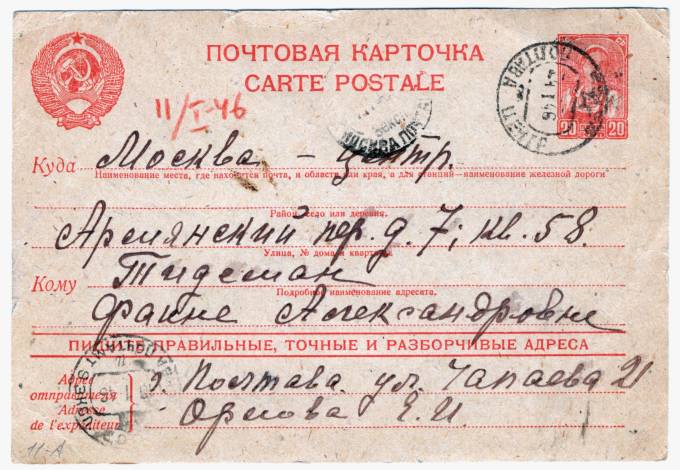 ПОЧТОВАЯ КАРТОЧКА
CARTE POSTALE
11/I-46
ПОЛТАВА
МОСКВА
20 20
Куда Москва - центр.
Наименование места, где находится почта, и области или края, а для станций—наименование железной дороги
Район, село или деревня.
Армянский пер. д. 7; кв. 58.
Улица, № дома и квартиры
Кому Тидеман
Подробное наименование адресата.
Фаине Александровне
ПИШИТЕ ПРАВИЛЬНЫЕ, ТОЧНЫЕ И РАЗБОРЧИВЫЕ АДРЕСА
Адрес отправителя
г. Полтава ул. Чапаева 21
Adresse de l'expéditeur
Орлова Е. И.
11-А